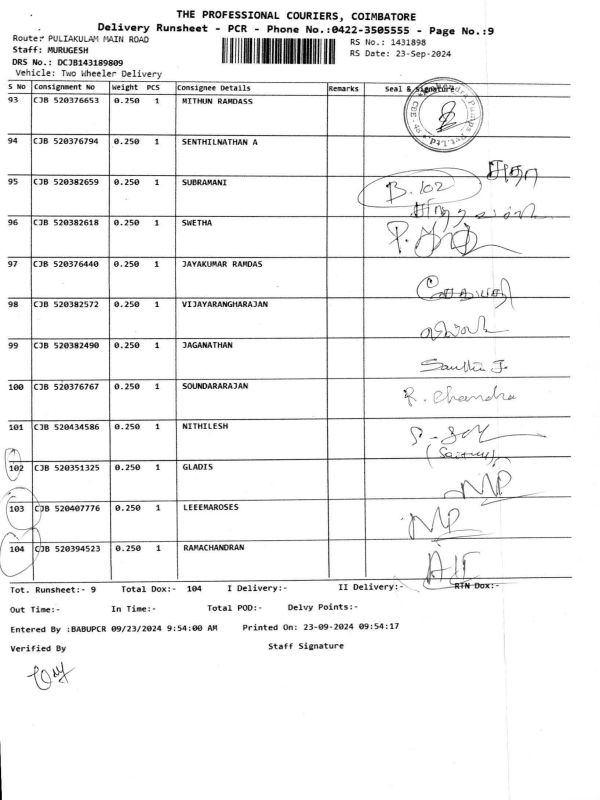 THE PROFESSIONAL COURIERS, COIMBATORE
Delivery Runsheet - PCR - Phone No.:0422-3505555 - Page No.:9
Route: PULIAKULAM MAIN ROAD
RS No.: 1431898
Staff: MURUGESH
RS Date: 23-Sep-2024
DRS No.: DCJB143189809
Vehicle: Two Wheeler Delivery
S No Consignment No Weight PCS Consignee Details Remarks Seal & Signature
93 CJB 520376653 0.250 1 MITHUN RAMDASS
94 CJB 520376794 0.250 1 SENTHILNATHAN A
95 CJB 520382659 0.250 1 SUBRAMANI B. 102
96 CJB 520382618 0.250 1 SWETHA
97 CJB 520376440 0.250 1 JAYAKUMAR RAMDAS
98 CJB 520382572 0.250 1 VIJAYARANGHARAJAN
99 CJB 520382490 0.250 1 JAGANATHAN
100 CJB 520376767 0.250 1 SOUNDARARAJAN R. Chandra
101 CJB 520434586 0.250 1 NITHILESH
102 CJB 520351325 0.250 1 GLADIS MP
103 CJB 520407776 0.250 1 LEEEMAROSES MP
104 CJB 520394523 0.250 1 RAMACHANDRAN
Tot. Runsheet:- 9 Total Dox:- 104 I Delivery:- II Delivery:- RTN Dox:-
Out Time:- In Time:- Total POD:- Delvy Points:-
Entered By :BABUPCR 09/23/2024 9:54:00 AM Printed On: 23-09-2024 09:54:17
Verified By Staff Signature